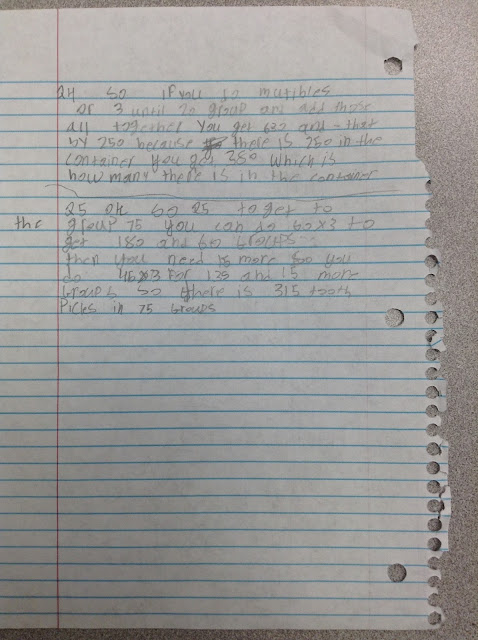 24 so if you do mutibles
of 3 until 20 group and add those
all together you get 630 and - that
by 250 because there is 250 in the
container you get 380 which is
how many there is in the container
25 ok so 25 to get to
the group 75 you can do 60x3 to
get 180 and 60 groups
then you need 15 more so you
do 45x3 for 135 and 15 more
Groups so there is 315 tooth
Picks in 75 Groups